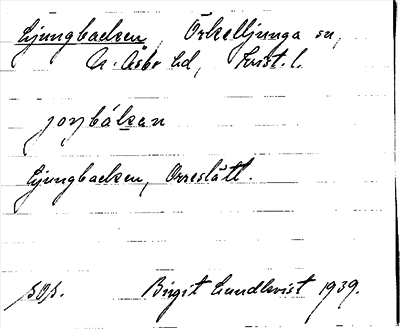 Ljungbacken, Örkelljunga sn,
N. Åsbo hd, Krist. l.
joŋbákan
Ljungbacken, Orreslätt.
Birgit Lundkvist 1939.